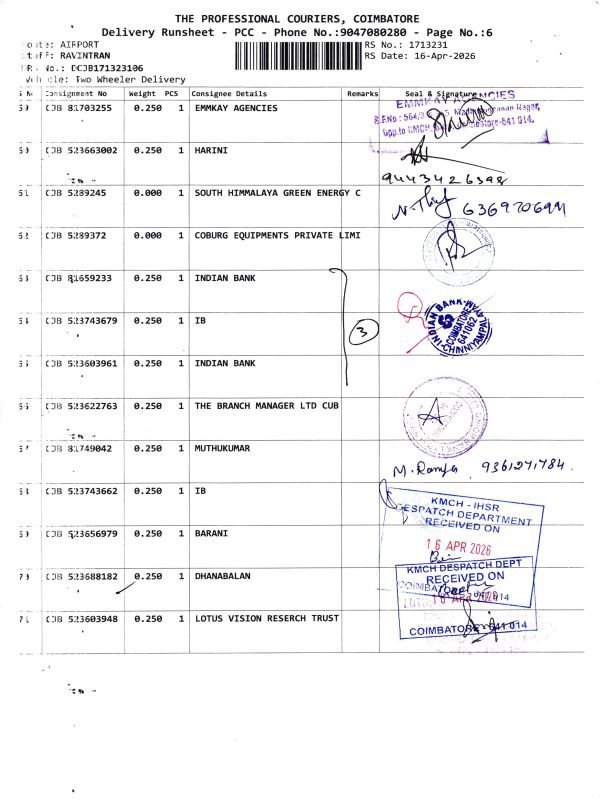 THE PROFESSIONAL COURIERS, COIMBATORE
Delivery Runsheet - PCC - Phone No.:9047080280 - Page No.:6
AIRPORT
RS No.: 1713231
RAVINTRAN
RS Date: 16-Apr-2026
No.: DCJB171323106
Two Wheeler Delivery
Consignment No Weight PCS Consignee Details Remarks Seal & Signature
CJB 81703255 0.250 1 EMMKAY AGENCIES
EMMKAY AGENCIES
641 014.
CJB 523663002 0.250 1 HARINI
9443426398
CJB 5289245 0.000 1 SOUTH HIMMALAYA GREEN ENERGY C
6369706911
CJB 5289372 0.000 1 COBURG EQUIPMENTS PRIVATE LIMI
CJB 81659233 0.250 1 INDIAN BANK
CJB 523743679 0.250 1 IB
3
INDIAN BANK
COIMBATORE
641062
CHINNIYAMPALAYAM
CJB 523603961 0.250 1 INDIAN BANK
CJB 523622763 0.250 1 THE BRANCH MANAGER LTD CUB
CJB 81749042 0.250 1 MUTHUKUMAR
M. Ramya 9361271784.
CJB 523743662 0.250 1 IB
KMCH - IHSR
DESPATCH DEPARTMENT
RECEIVED ON
CJB 523656979 0.250 1 BARANI
16 APR 2026
KMCH DESPATCH DEPT
RECEIVED ON
CJB 523688182 0.250 1 DHANABALAN
CJB 523603948 0.250 1 LOTUS VISION RESERCH TRUST
COIMBATORE 641 014